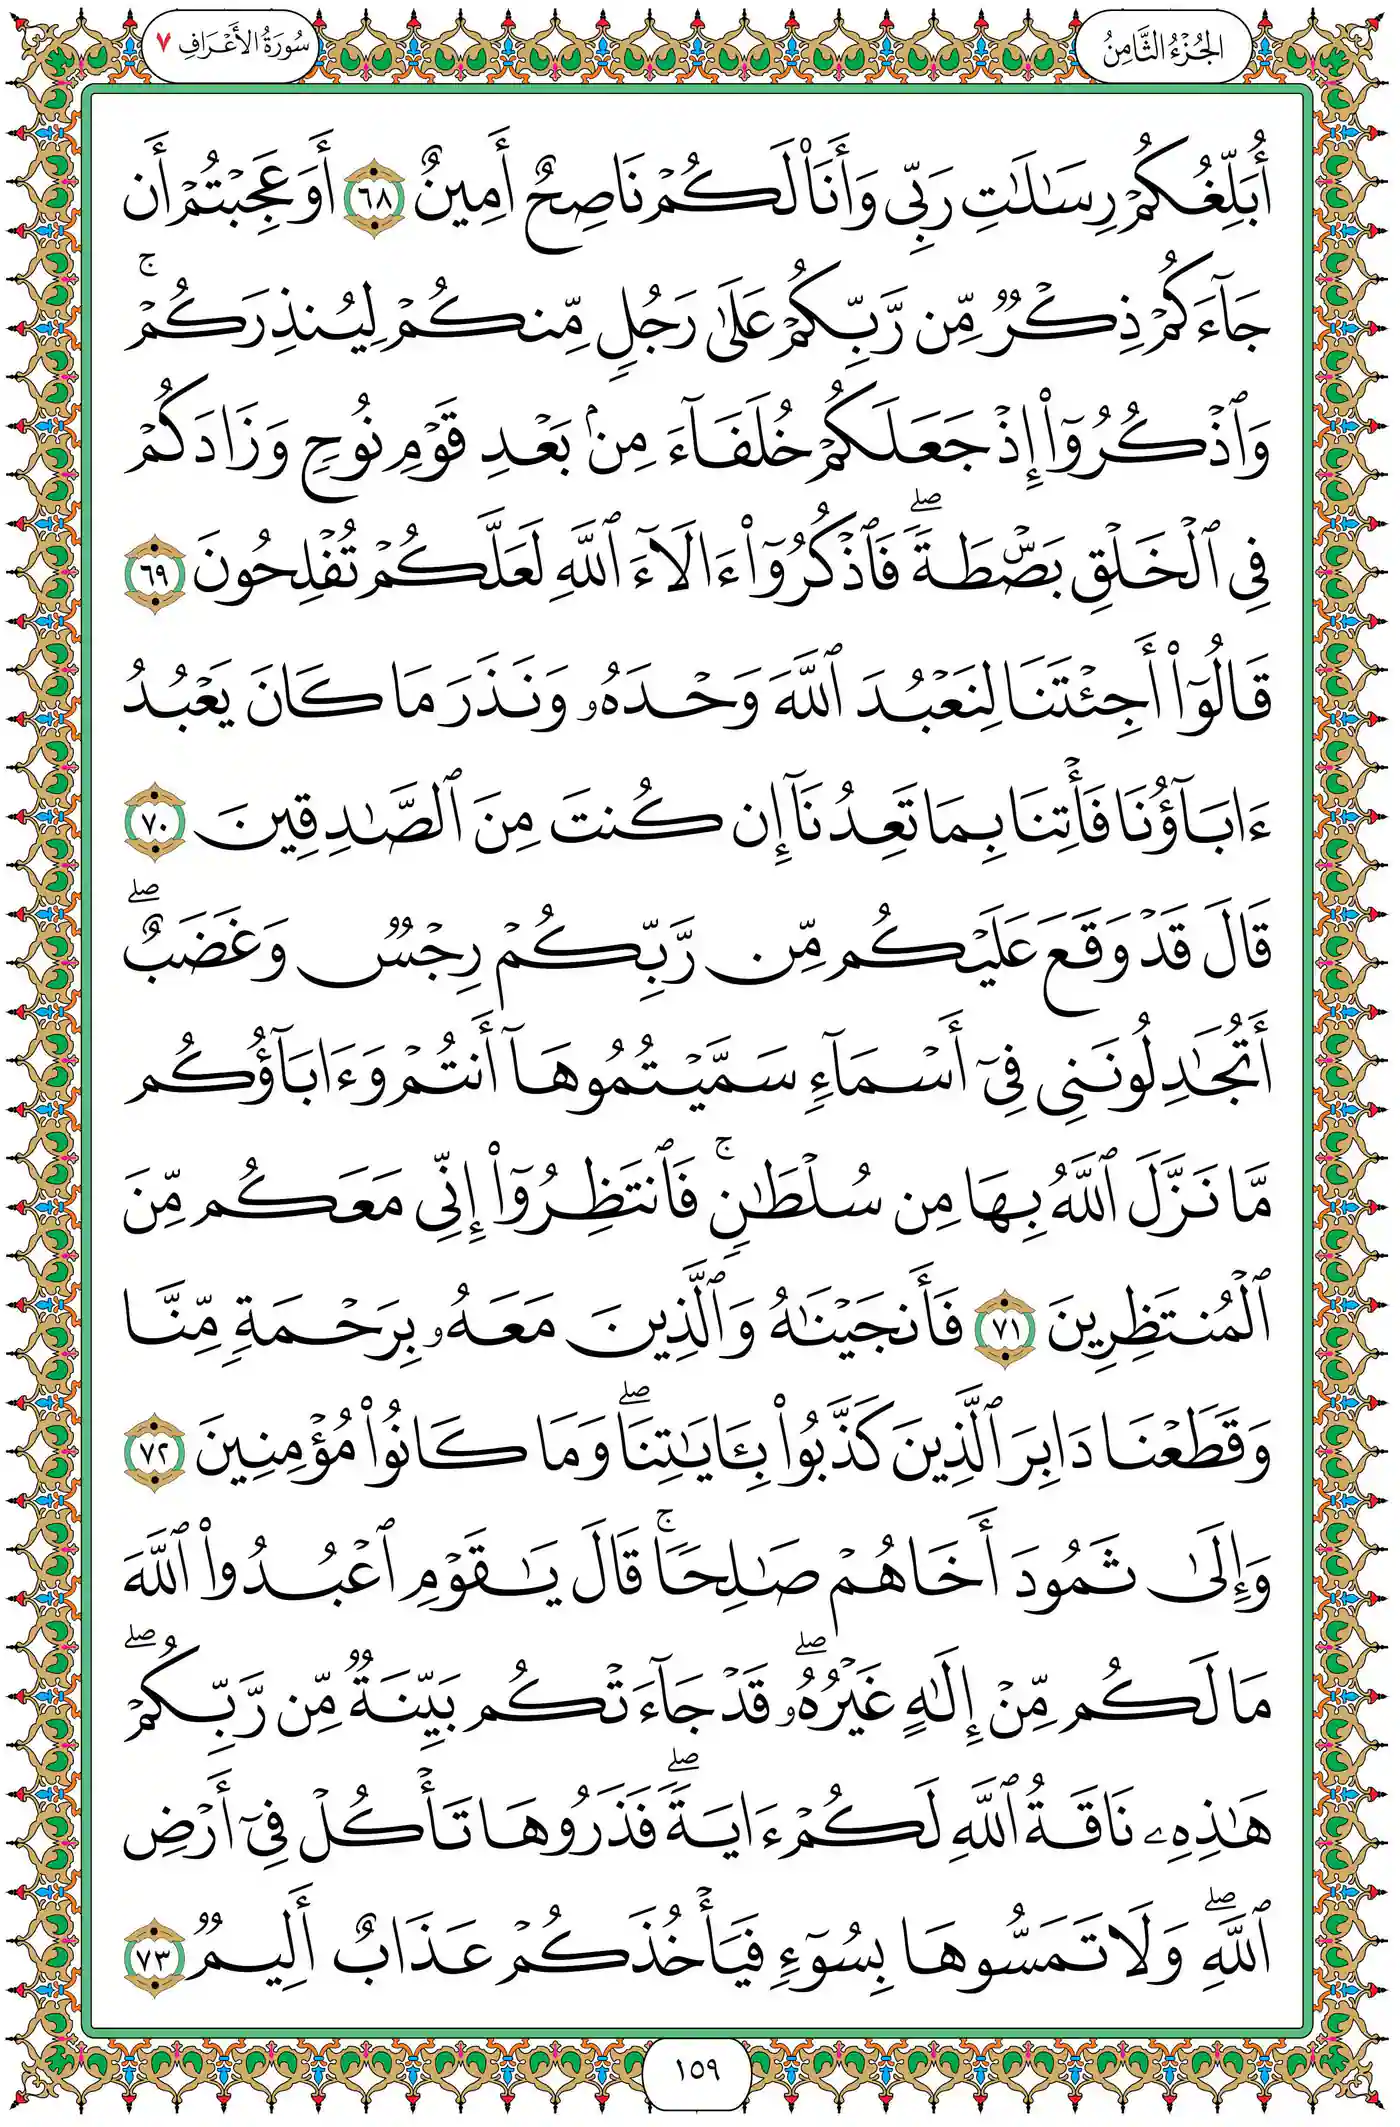 الجُزْءُ الثَّامِنُ
سُورَةُ الأَعْرَافِ ٧
أُبَلِّغُكُمْ رِسَٰلَٰتِ رَبِّى وَأَنَا۠ لَكُمْ نَاصِحٌ أَمِينٌ ٦٨ أَوَعَجِبْتُمْ أَن
جَآءَكُمْ ذِكْرٌ مِّن رَّبِّكُمْ عَلَىٰ رَجُلٍ مِّنكُمْ لِيُنذِرَكُمْ ۚ
وَٱذْكُرُوٓا۟ إِذْ جَعَلَكُمْ خُلَفَآءَ مِنۢ بَعْدِ قَوْمِ نُوحٍ وَزَادَكُمْ
فِى ٱلْخَلْقِ بَصْۜطَةً ۖ فَٱذْكُرُوٓا۟ ءَالَآءَ ٱللَّهِ لَعَلَّكُمْ تُفْلِحُونَ ٦٩
قَالُوٓا۟ أَجِئْتَنَا لِنَعْبُدَ ٱللَّهَ وَحْدَهُۥ وَنَذَرَ مَا كَانَ يَعْبُدُ
ءَابَآؤُنَا فَأْتِنَا بِمَا تَعِدُنَآ إِن كُنتَ مِنَ ٱلصَّٰدِقِينَ ٧٠
قَالَ قَدْ وَقَعَ عَلَيْكُم مِّن رَّبِّكُمْ رِجْسٌ وَغَضَبٌ ۖ
أَتُجَٰدِلُونَنِى فِىٓ أَسْمَآءٍ سَمَّيْتُمُوهَآ أَنتُمْ وَءَابَآؤُكُم
مَّا نَزَّلَ ٱللَّهُ بِهَا مِن سُلْطَٰنٍ ۚ فَٱنتَظِرُوٓا۟ إِنِّى مَعَكُم مِّنَ
ٱلْمُنتَظِرِينَ ٧١ فَأَنجَيْنَٰهُ وَٱلَّذِينَ مَعَهُۥ بِرَحْمَةٍ مِّنَّا
وَقَطَعْنَا دَابِرَ ٱلَّذِينَ كَذَّبُوا۟ بِـَٔايَٰتِنَا ۖ وَمَا كَانُوا۟ مُؤْمِنِينَ ٧٢
وَإِلَىٰ ثَمُودَ أَخَاهُمْ صَٰلِحًا ۚ قَالَ يَٰقَوْمِ ٱعْبُدُوا۟ ٱللَّهَ
مَا لَكُم مِّنْ إِلَٰهٍ غَيْرُهُۥ ۖ قَدْ جَآءَتْكُم بَيِّنَةٌ مِّن رَّبِّكُمْ ۖ
هَٰذِهِۦ نَاقَةُ ٱللَّهِ لَكُمْ ءَايَةً ۖ فَذَرُوهَا تَأْكُلْ فِىٓ أَرْضِ
ٱللَّهِ ۖ وَلَا تَمَسُّوهَا بِسُوٓءٍ فَيَأْخُذَكُمْ عَذَابٌ أَلِيمٌ ٧٣
١٥٩